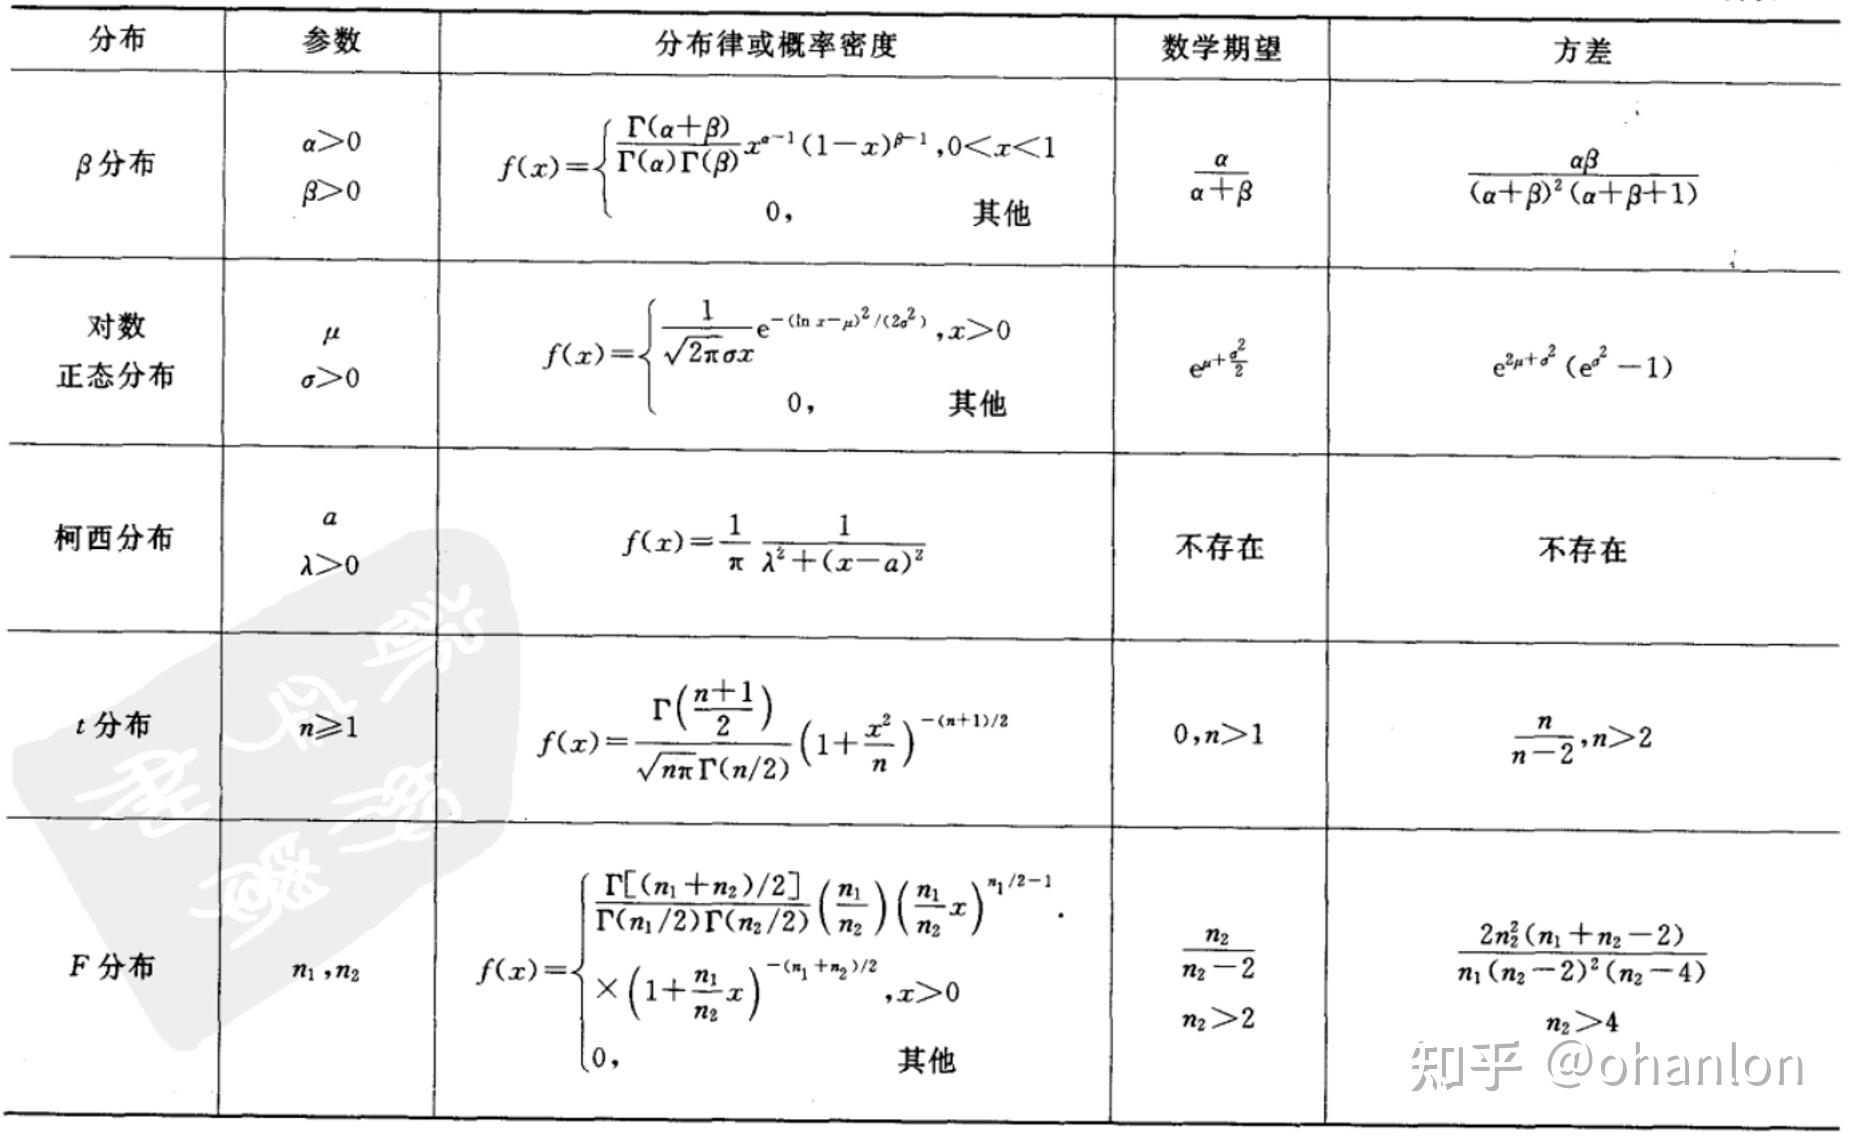 分布 参数 分布律或概率密度 数学期望 方差
β分布 α>0 β>0 f(x)={Γ(α+β)/Γ(α)Γ(β) x^{α-1}(1-x)^{β-1},0<x<1 0, 其他 α/(α+β) αβ/((α+β)²(α+β+1))
对数正态分布 μ σ>0 f(x)={1/(√(2π)σx) e^{-(ln x-μ)²/(2σ²)},x>0 0, 其他 e^{μ+σ²/2} e^{2μ+σ²}(e^{σ²}-1)
柯西分布 a λ>0 f(x)=1/π 1/(λ²+(x-a)²) 不存在 不存在
t分布 n≥1 f(x)=Γ((n+1)/2)/(√(nπ)Γ(n/2)) (1+x²/n)^{-(n+1)/2} 0,n>1 n/(n-2),n>2
F分布 n₁,n₂ f(x)={Γ[(n₁+n₂)/2]/(Γ(n₁/2)Γ(n₂/2)) (n₁/n₂)(n₁/n₂ x)^{n₁/2-1}· ×(1+n₁/n₂ x)^{-(n₁+n₂)/2},x>0 0, 其他 n₂/(n₂-2) n₂>2 2n₂²(n₁+n₂-2)/(n₁(n₂-2)²(n₂-4)) n₂>4
知乎 @ohanlon